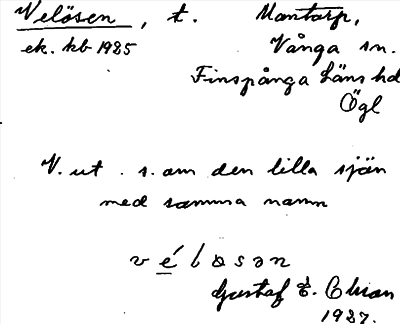 Velösen, t. Mantorp,
ek. kb 1985 Vånga sn.
Finspånga läns hd
Ögl
V. ut. s. om den lilla sjön
med samma namn
Gustaf E.
1937.